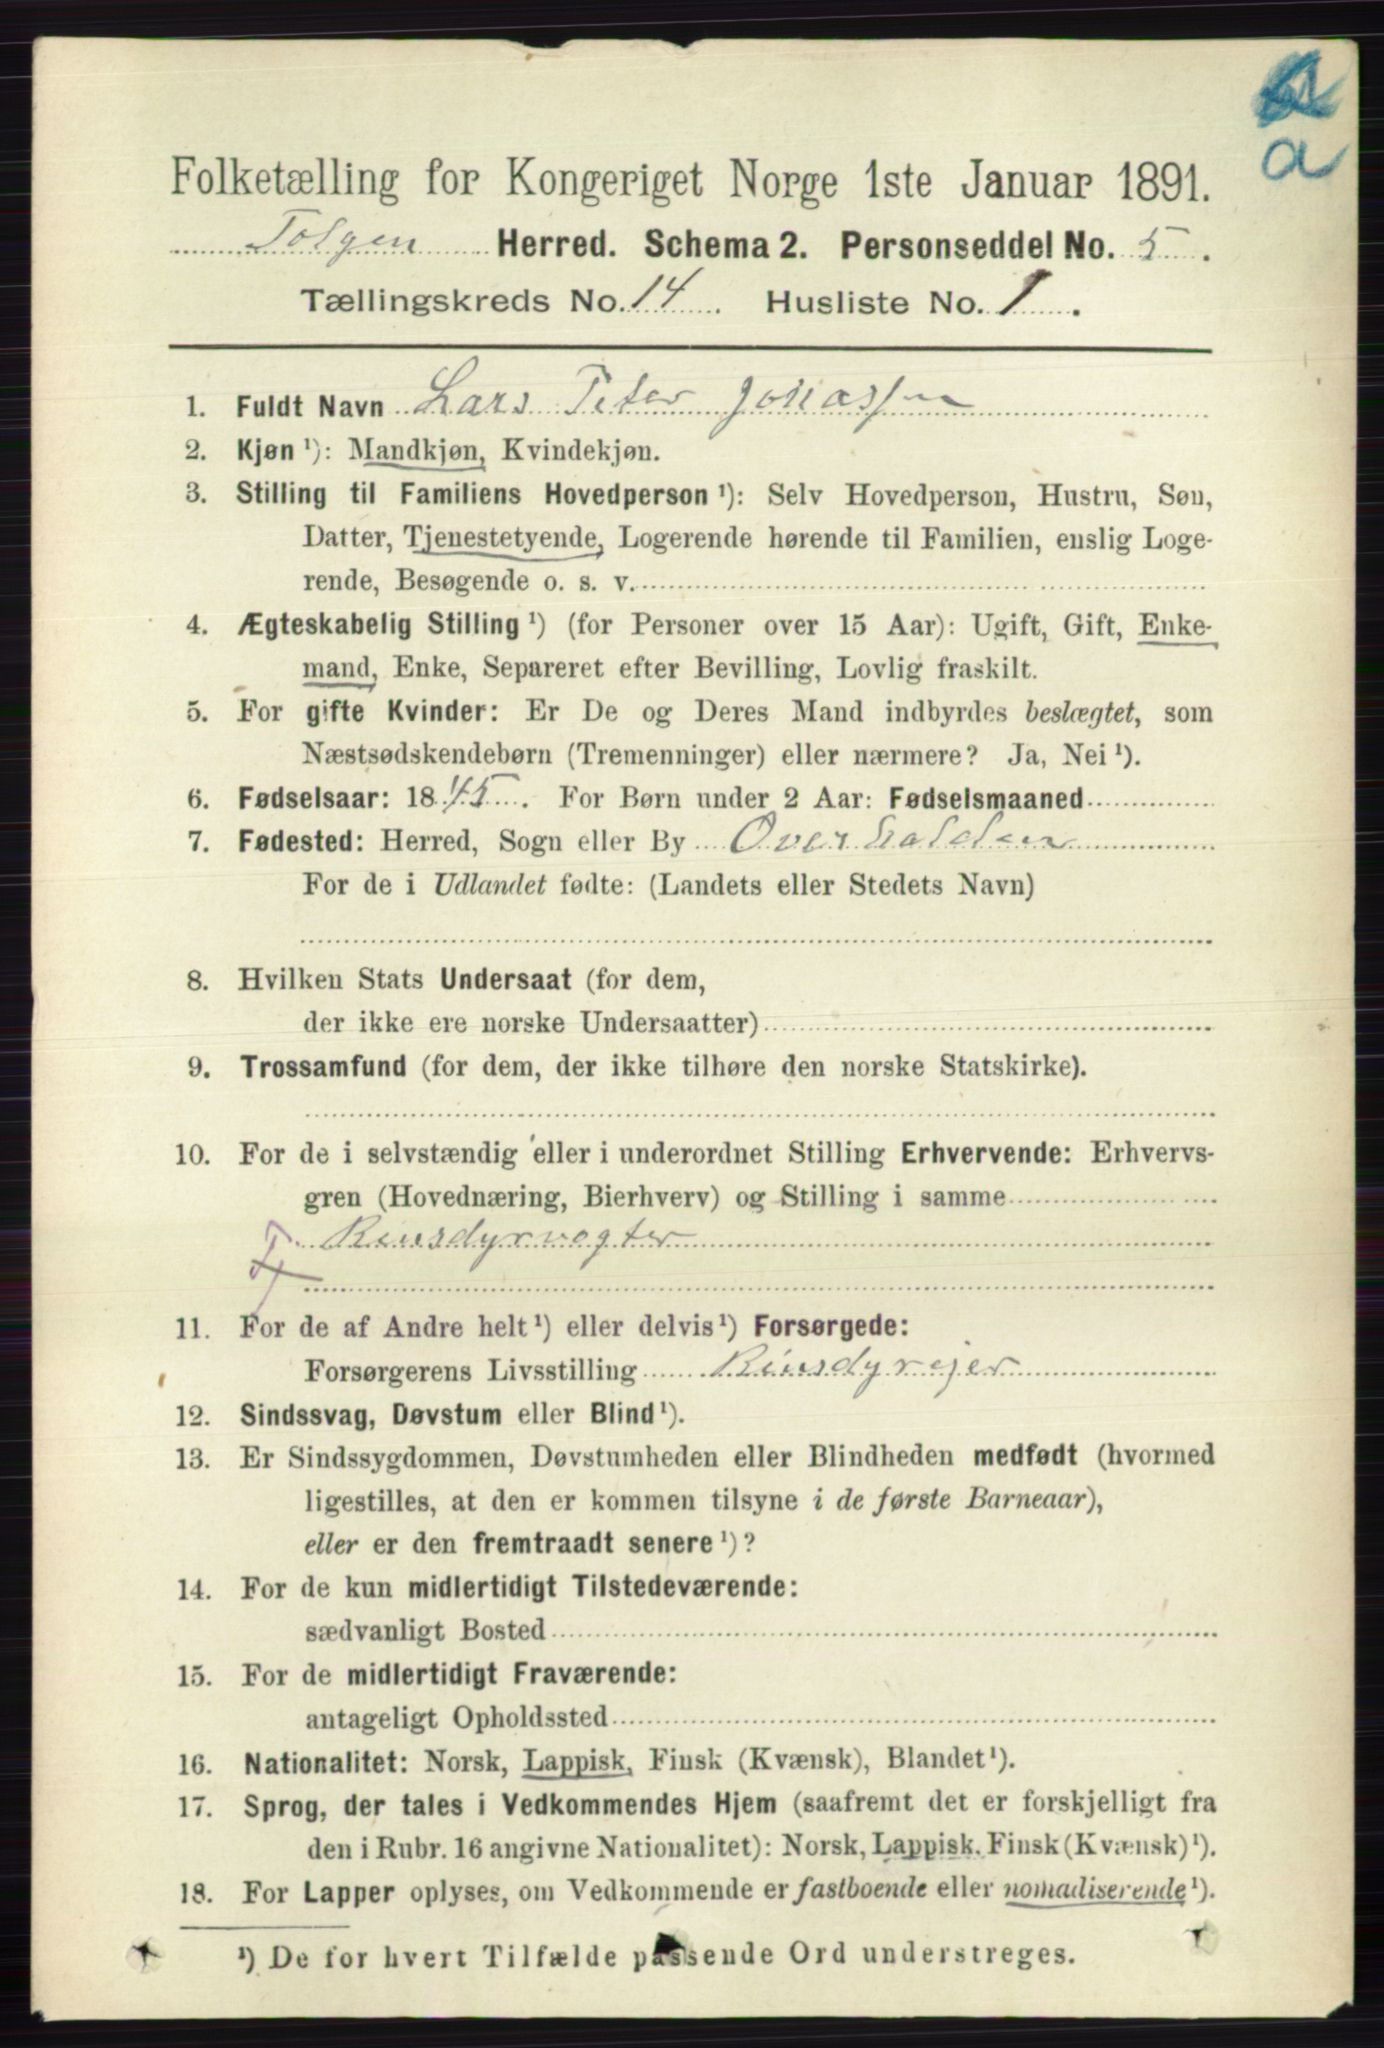 a
a
Folketælling for Kongeriget Norge 1ste Januar 1891.
Tolgen Herred. Schema 2. Personseddel No. 5.
Tællingskreds No. 14. Husliste No. 1.
1. Fuldt Navn Lars Peter Jonassen
2. Kjøn ¹): Mandkjøn, Kvindekjøn.
3. Stilling til Familiens Hovedperson ¹): Selv Hovedperson, Hustru, Søn,
Datter, Tjenestetyende, Logerende hørende til Familien, enslig Loge-
rende, Besøgende o. s. v.
4. Ægteskabelig Stilling ¹) (for Personer over 15 Aar): Ugift, Gift, Enke-
mand, Enke, Separeret efter Bevilling, Lovlig fraskilt.
5. For gifte Kvinder: Er De og Deres Mand indbyrdes beslægtet, som
Næstsødskendebørn (Tremenninger) eller nærmere? Ja, Nei ¹).
6. Fødselsaar: 1845. For Børn under 2 Aar: Fødselsmaaned
7. Fødested: Herred, Sogn eller By Overhalden
For de i Udlandet fødte: (Landets eller Stedets Navn)
8. Hvilken Stats Undersaat (for dem,
der ikke ere norske Undersaatter)
9. Trossamfund (for dem, der ikke tilhøre den norske Statskirke).
10. For de i selvstændig eller i underordnet Stilling Erhvervende: Erhvervs-
gren (Hovednæring, Bierhverv) og Stilling i samme
Rensdyrvogter
11. For de af Andre helt ¹) eller delvis ¹) Forsørgede:
Forsørgerens Livsstilling Rensdyrejer
12. Sindssvag, Døvstum eller Blind ¹).
13. Er Sindssygdommen, Døvstumheden eller Blindheden medfødt (hvormed
ligestilles, at den er kommen tilsyne i de første Barneaar),
eller er den fremtraadt senere ¹)?
14. For de kun midlertidigt Tilstedeværende:
sædvanligt Bosted
15. For de midlertidigt Fraværende:
antageligt Opholdssted
16. Nationalitet: Norsk, Lappisk, Finsk (Kvænsk), Blandet ¹).
17. Sprog, der tales i Vedkommendes Hjem (saafremt det er forskjelligt fra
den i Rubr. 16 angivne Nationalitet): Norsk, Lappisk, Finsk (Kvænsk) ¹).
18. For Lapper oplyses, om Vedkommende er fastboende eller nomadiserende ¹).
¹) De for hvert Tilfælde passende Ord understreges.